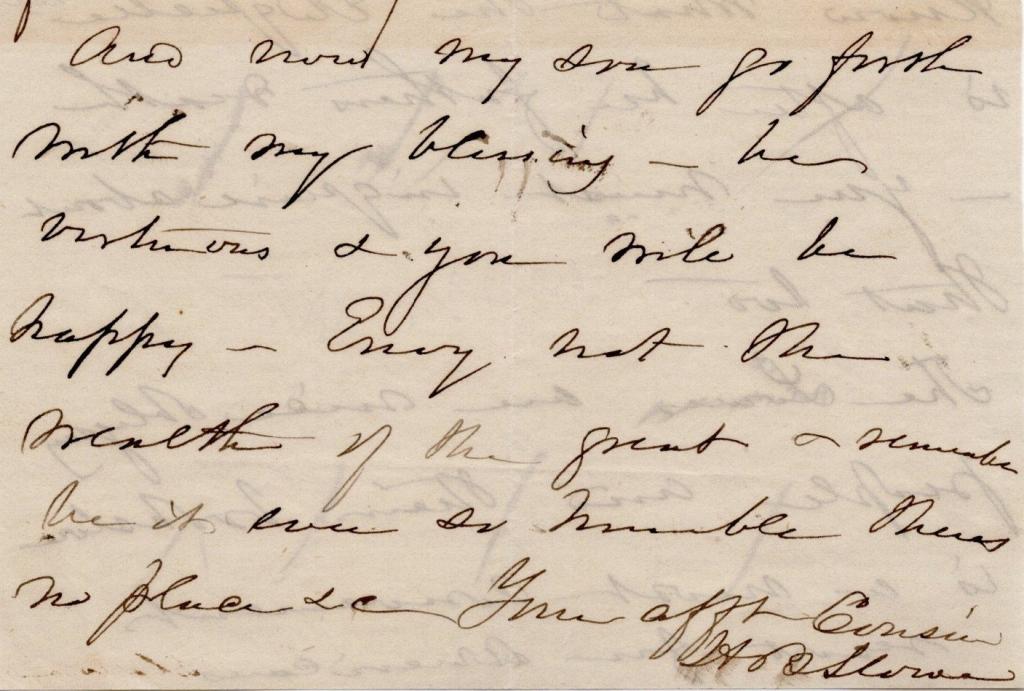 And now my son go forth
with my blessing – be
virtuous & you will be
happy – Envy not the
wealth of the great & remember
be it ever so humble theres
no place &c Your afft Cousin
H B Stowe